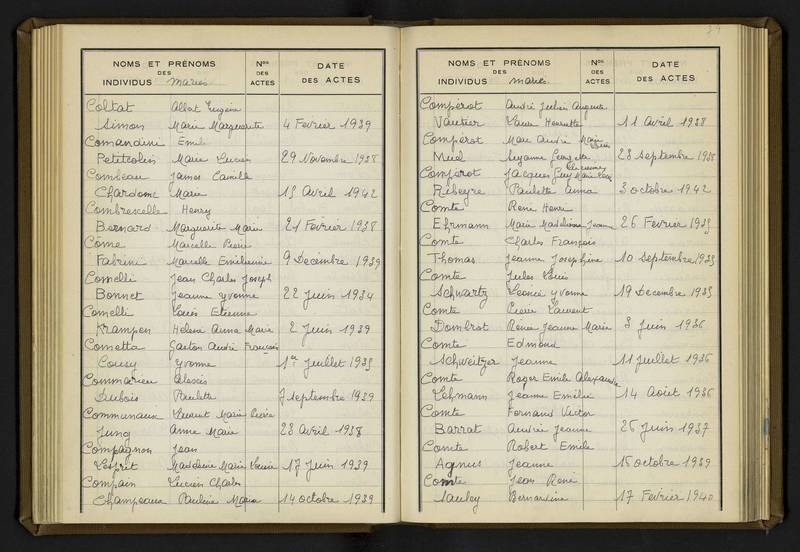 NOMS ET PRÉNOMS
DES
INDIVIDUS mariés
Nos
DES
ACTES
DATE
DES ACTES
Coltat Albert Eugène
Simon Marie Marguerite 4 Février 1939
Comandini Emile
Petitcolin Marie Louise 29 Novembre 1938
Combeau James Camille
Chardome Marie 15 Avril 1942
Combrexelle Henry
Bernard Marguerite Marie 21 Février 1938
Côme Marcelle Pierre
Fabrini Marcelle 9 Décembre 1939
Comelli Jean Charles Joseph
Bonnet Jeanne Yvonne 22 Juin 1934
Comelli Louis Etienne
Krampen Hélène Anna Marie 2 Juin 1939
Cometta Gaston André François
Coury Yvonne 1er Juillet 1935
Commarieu Alexis
Dubois Paulette 7 septembre 1939
Communaux Vincent Marie Pierre
Jung Anne Marie 28 Avril 1938
Compagnon Jean
Lesprit Madeleine Marie Louise 17 Juin 1939
Compain Lucien Charles
Champeaux Pauline Maria 14 octobre 1939
NOMS ET PRÉNOMS
DES
INDIVIDUS mariés
Nos
DES
ACTES
DATE
DES ACTES
Compérot André Julien Auguste
Vautier Laure Henriette 11 Avril 1938
Compérot Marc André Marie Louis
Muel Suzanne Georgette 28 septembre 1935
Compérot Jacques Guy Marie
Ribeyre Paulette Anna 3 octobre 1942
Comte René Henri
Ehrmann Marie Madeleine Jeanne 26 Février 1935
Comte Charles François
Thomas Jeanne Joséphine 10 septembre 1935
Comte Jules Louis
Schwartz Léonie Yvonne 19 Décembre 1935
Comte Pierre Laurent
Dombrot Renée Jeanne Marie 3 Juin 1936
Comte Edmond
Schweitzer Jeanne 11 Juillet 1936
Comte Roger Emile Alexandre
Lehmann Jeanne Emilie 14 Août 1936
Comte Fernand Victor
Barrat Andrée Jeanne 26 Juin 1937
Comte Robert Emile
Agnus Jeanne 15 octobre 1939
Comte Jean René
Saulcy Bernardine 17 Février 1940